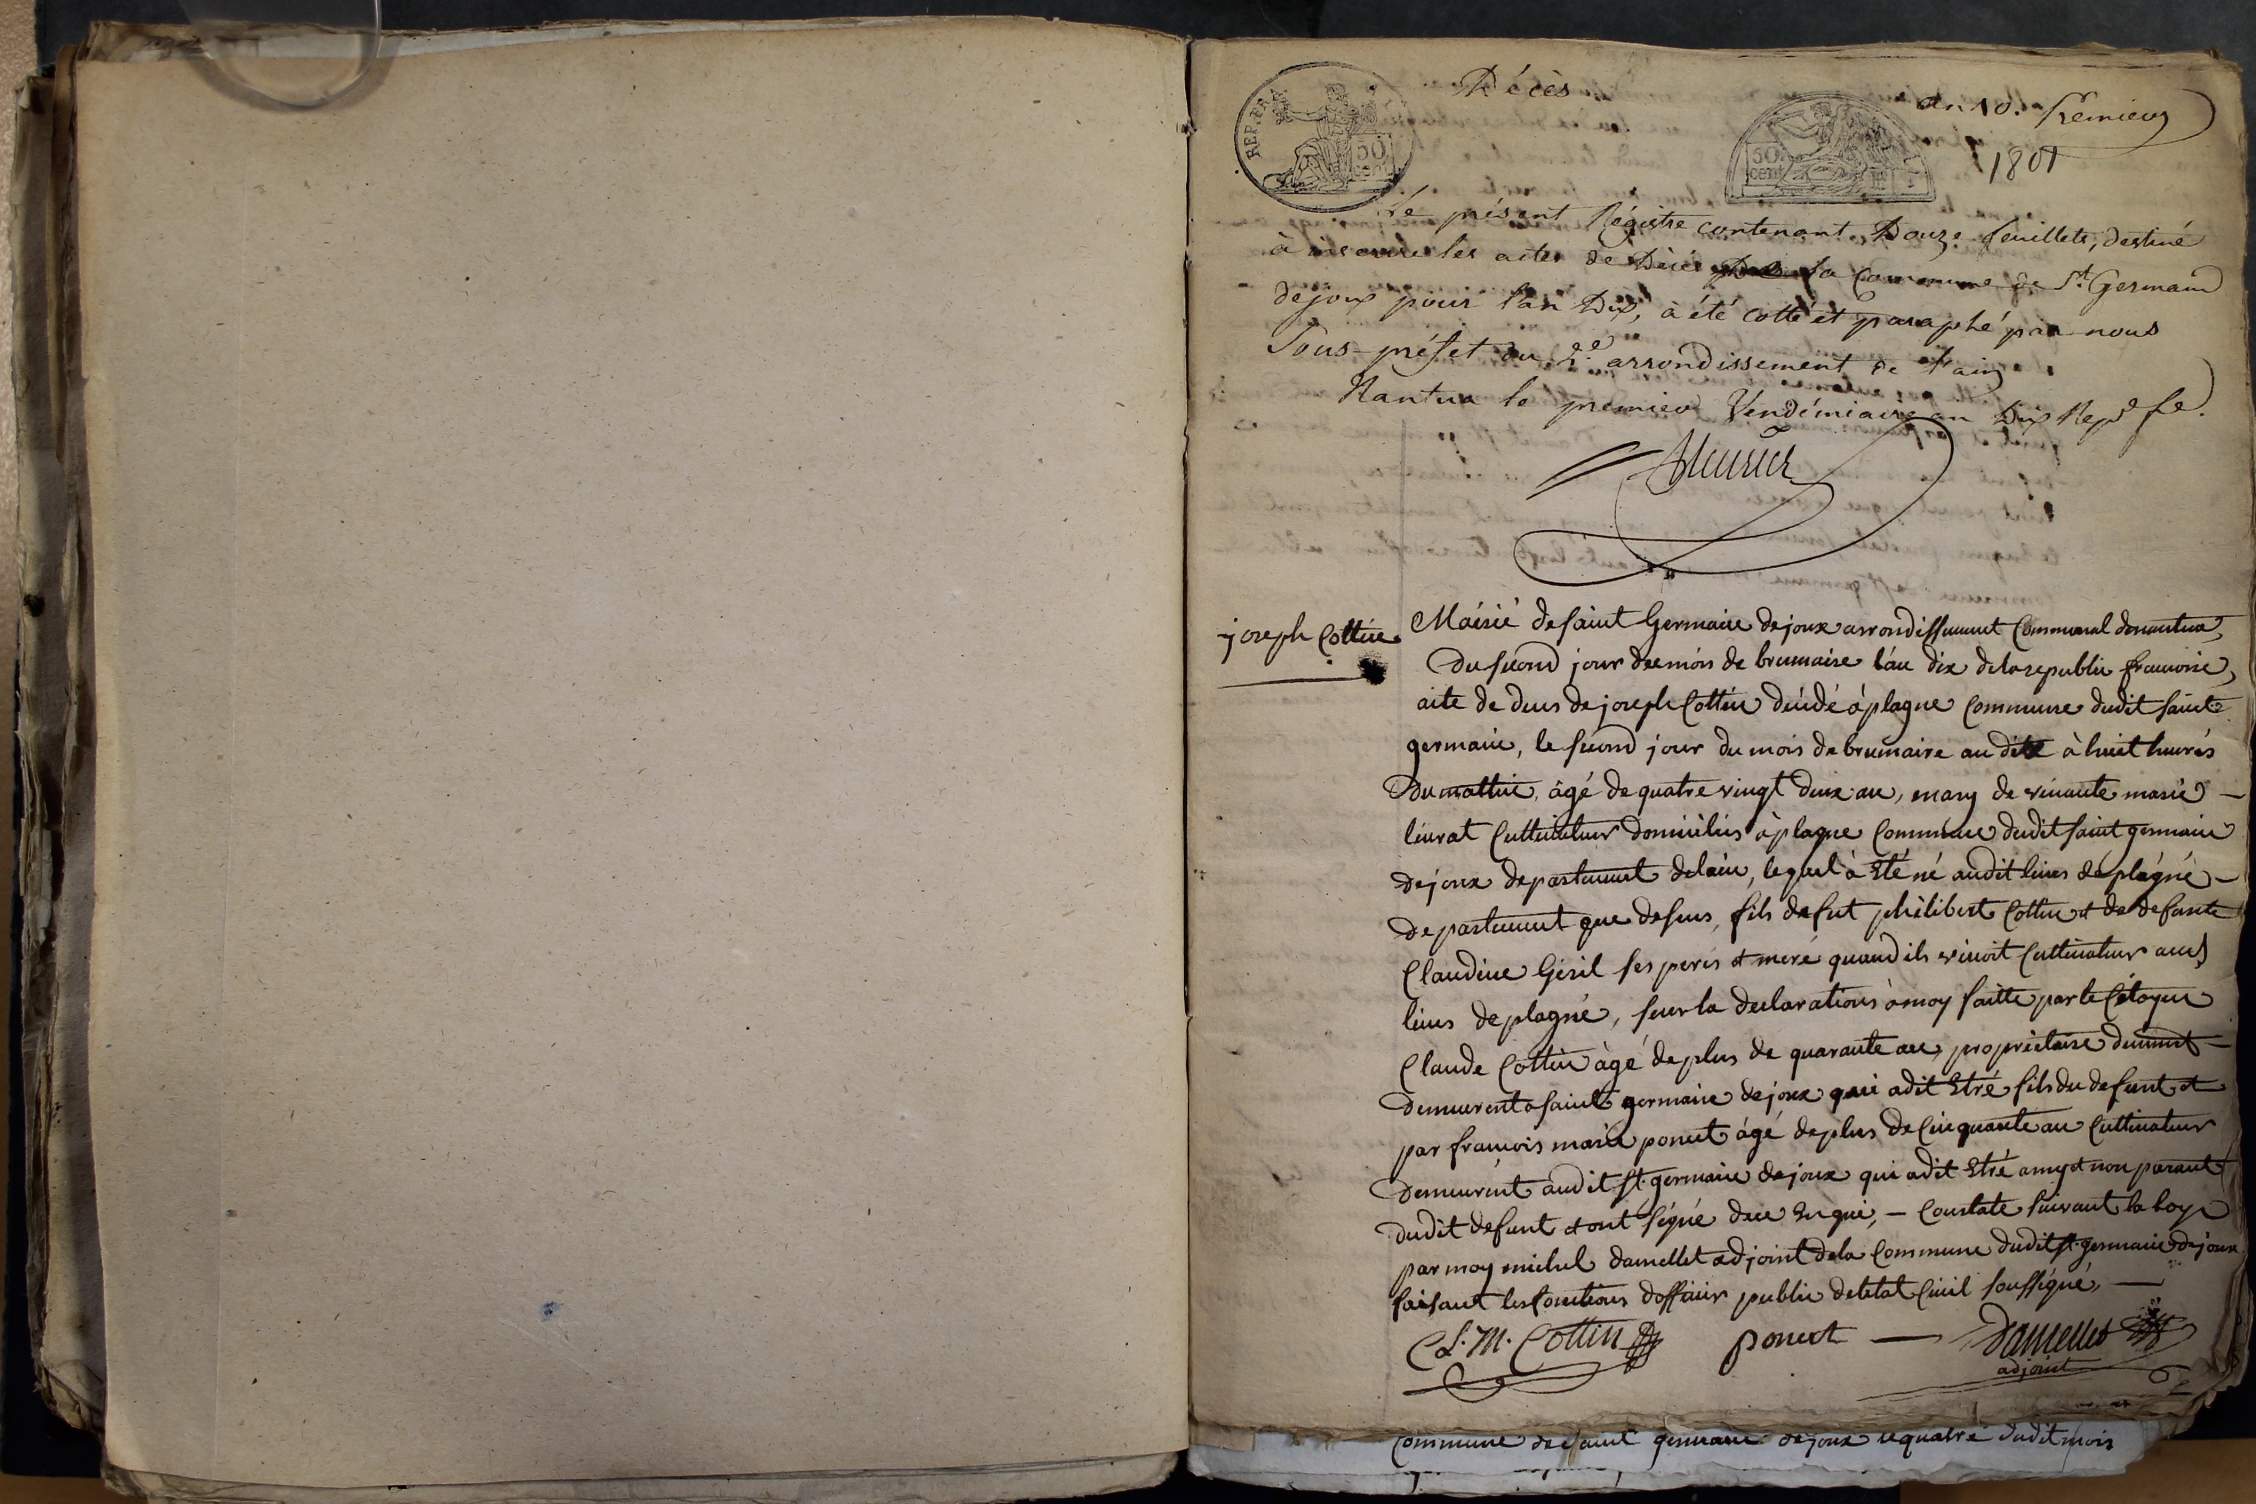 Décès
an 10. Premier
1801
REP. FRA.
50 cent
50 cent
Le présent Régistre contenant Douze feuillets, destiné
à inscrire les actes de Décès de la Commune de St. Germain
dejoux pour l'an Dix, à été cotté et paraphé par nous
Sous-préfet du 2.e arrondissement de l'ain
Nantua le premier Vendémiaire an Dix Repe. fe.
joseph Cottin
Mairié de saint Germain dejoux arrondissement Communal denantua,
Du second jour du mois de brumaire l'an dix dela republic francoise,
acte de deces de joseph Cottin décédé à plagne Commune dudit saint
germain, le second jour du mois de brumaire an dix à huit heurés
Du mattin, âgé de quatre vingt deux an, mary de vivante marié —
livrat Cultivateur domiciliés à plagne Commune dudit saint germain
dejoux departement delain, lequel à Eté né audit lieus de plagné —
departement que desus, fils de fut philibert Cottin et de defunte
Claudine Géril ses perés et meré quand ils vivoit Cultivateur aud
lieus de plagné, sur la declarations à moy faitte par le Citoyen
Claude Cottin âgé de plus de quarante an, propriétaire
demeurent a saint germain dejoux qui adit Etré fils du defunt et
par francois marie poncet âgé de plus de Cinquante an Cultivateur
demeurent audit st. germain dejoux qui adit Etré amy et non parant
dudit defunt et ont signé — Constaté suivant la loy
par moy michel damellet adjoint dela Commune dudit st. germain dejoux
faisant les fonctions d'officier public de letat Civil soussigné, —
Cl. M. Cottin poncet — Damellet
adjoint
Commune de saint germain dejoux le quatre dudit mois